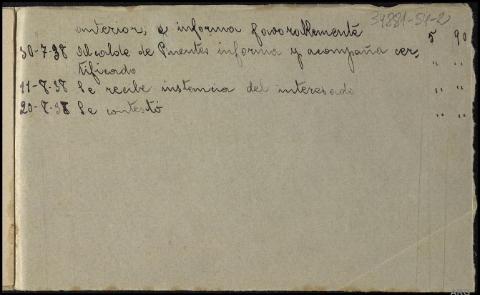 34281-51-2
anterior, e informa favorablemente 5 90
30-7-38 Alcalde de Puentes informa y acompaña cer- " "
tificado
11-8-38 Se recibe instancia del interesado " "
20-8-38 Se contestó " "